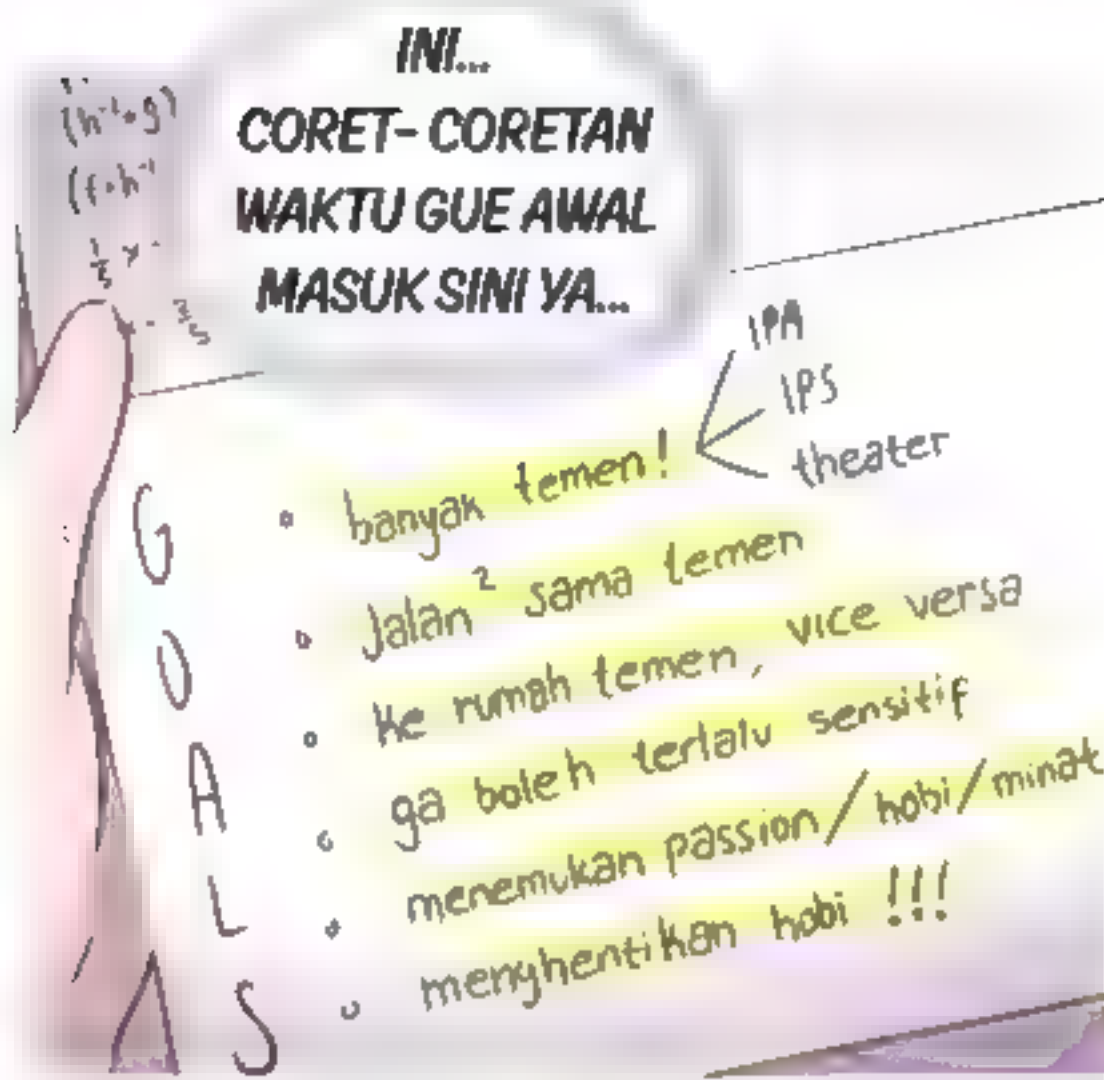 INI...
CORET-CORETAN
WAKTU GUE AWAL
MASUK SINI YA...
(h⁻¹∘g)
(f∘h⁻¹
IPA
IPS
theater
GOALS
◦ banyak temen!
◦ Jalan² sama temen
◦ Ke rumah temen, vice versa
◦ ga boleh terlalu sensitif
◦ menemukan passion/hobi/minat
◦ menghentikan hobi !!!